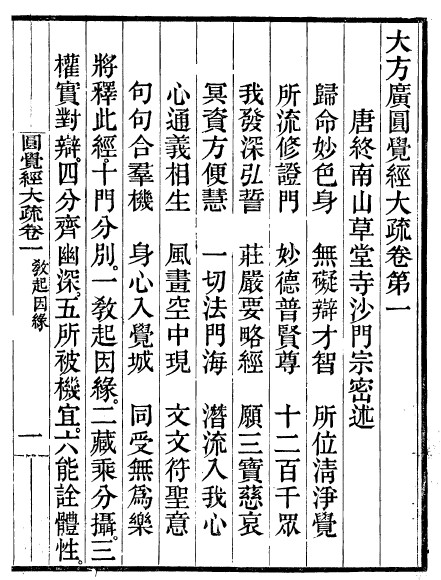 大方廣圓覺經大疏卷第一
唐終南山草堂寺沙門宗密述
歸命妙色身　無礙辯才智　所位清淨覺
所流修證門　妙德普賢尊　十二百千眾
我發深弘誓　莊嚴要略經　願三寶慈哀
冥資方便慧　一切法門海　潛流入我心
心通義相生　風畫空中現　文文符聖意
句句合羣機　身心入覺城　同受無爲樂
將釋此經。十門分別。一教起因緣。二藏乘分攝。三
權實對辯。四分齊幽深。五所被機宜。六能詮體性。
圓覺經大疏卷一　教起因緣　一